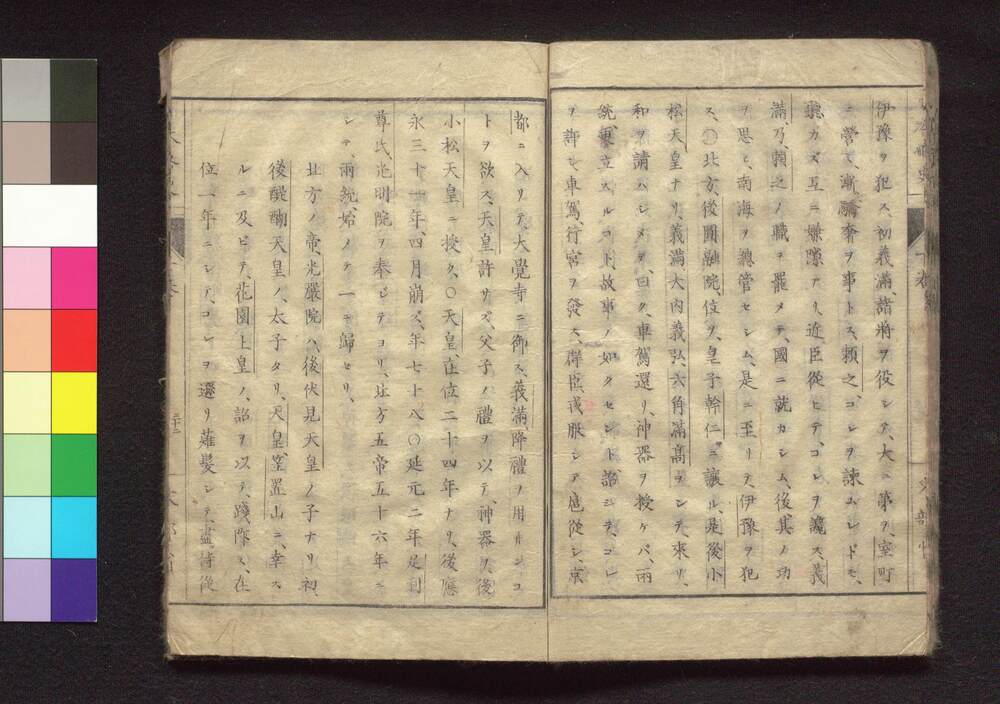 伊豫ヲ犯ス、初義滿、諸將ヲ役シテ、大ニ第ヲ、室町
ニ營ミ、漸驕奢ヲ事トス、頼之、コレヲ諫ムレドモ、
聽カズ、互ニ嫌隙アリ、近臣從ヒテ、コレヲ讒ス、義
滿、乃頼之ノ職ヲ罷メテ、國ニ就カシム、後其ノ功
ヲ思ヒ、南海ヲ總管セシム、是ニ至リテ、伊豫ヲ犯
ス、〇北方、後圓融院、位ヲ、皇子幹仁ニ讓ル、是後小
松天皇ナリ、義滿大内義弘六角滿高ヲシテ、來リ、
和ヲ請ハシメテ、曰ク、車駕還リ、神器ヲ授ケバ、兩
統、更立スルコト、故事ノ如クセント、詔シテ、コレ
ヲ許シ、車駕、行宮ヲ發ス、群臣、戎服シテ扈從シ、京
都ニ入リテ、大覺寺ニ御ス、義滿、降禮ヲ用ヰンコ
トヲ欲ス、天皇許サズ、父子ノ禮ヲ以テ、神器ヲ後
小松天皇ニ授ク、〇天皇、在位二十四年ナリ、後應
永三十一年、四月崩ズ、年七十八〇延元二年足利
尊氏、光明院ヲ奉ジテヨリ、北方五帝五十六年ニ
シテ、兩統、始メテ一ニ歸セリ、
北方ノ帝、光嚴院ハ、後伏見天皇ノ子ナリ、初
後醍醐天皇ノ、太子タリ、天皇笠置山ニ、幸ス
ルニ及ビテ、花園上皇ノ、詔ヲ以テ、踐祚ス、在
位一年ニシテ、コレヲ還リ薙髮シテ、